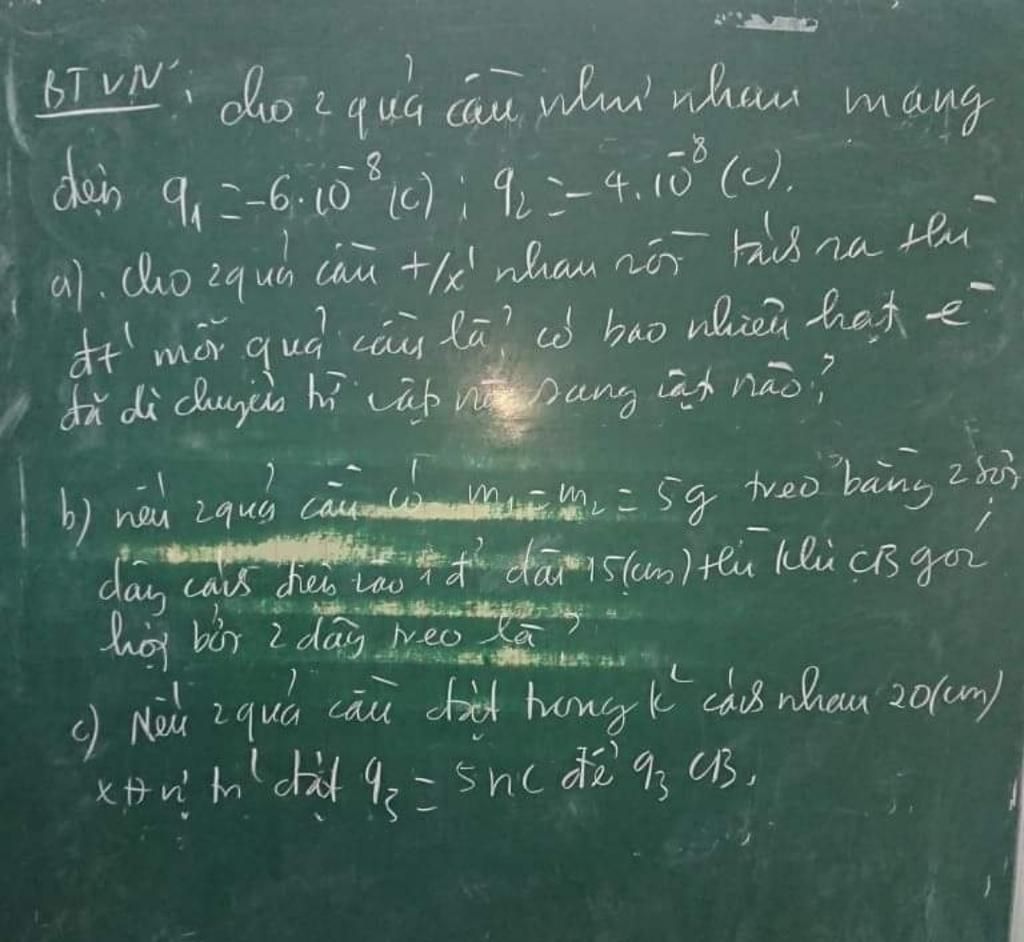 BTVN: cho 2 quả cầu như nhau mang
điện q₁ = -6.10⁻⁸ (C); q₂ = -4.10⁻⁸ (C).
a). Cho 2 quả cầu t/x' nhau rồi tách ra thì
đt' mỗi quả cầu là? có bao nhiêu hạt e⁻
đã di chuyển từ vật nào sang vật nào?
b) nếu 2 quả cầu có m₁ = m₂ = 5g treo bằng 2 sợi
dây cách điện vào 1 đ' dài 15(cm) thì khi CB góc
hợp bởi 2 dây treo là?
c) Nếu 2 quả cầu đặt trong k² cách nhau 20(cm)
xđ vị trí đặt q₃ = 5nC để q₃ CB.